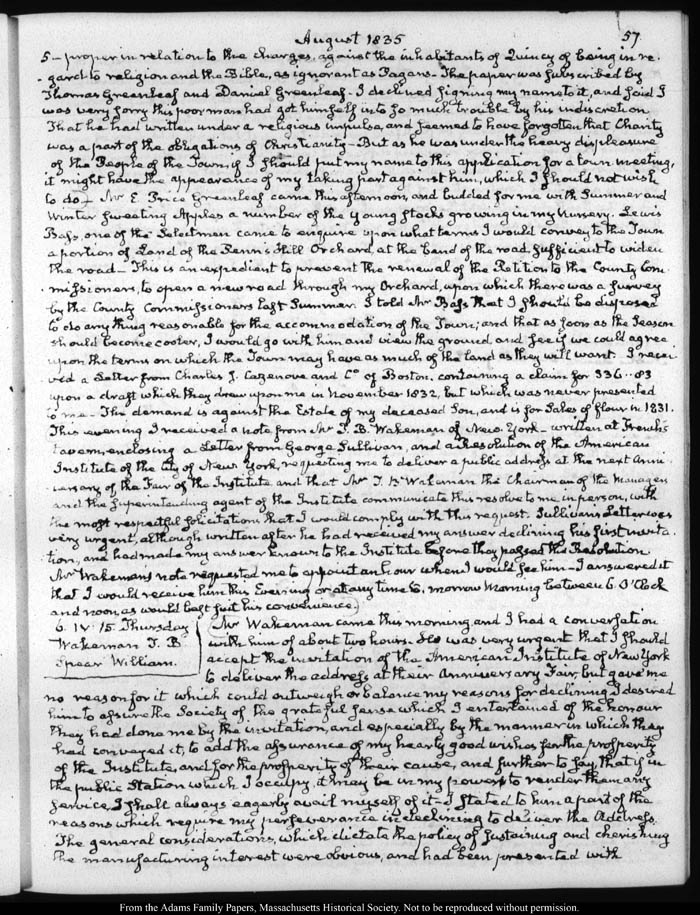 August 1835
57
5 — proper in relation to the charges, against the inhabitants of Quincy of being in re-
gard to religion and the Bible, as ignorant as Pagans. The paper was subscribed by
Thomas Greenleaf and Daniel Greenleaf. I declined signing my name to it, and said I
was very sorry this poor man had got himself into so much trouble by his indiscretion
That he had written under a religious impulse, and seemed to have forgotten that Charity
was a part of the obligations of Christianity — But as he was under the heavy displeasure
of the People of the Town, if I should put my name to this application for a town meeting,
it might have the appearance of my taking part against him, which I should not wish
to do — Mr E. Price Greenleaf came this afternoon, and budded for me with Summer and
Winter sweeting Apples a number of the young stocks growing in my Nursery. Lewis
Bass, one of the Selectmen came to enquire upon what terms I would convey to the Town
a portion of Land of the Penn's Hill Orchard, at the bend of the road sufficient to widen
the road — This is an expedient to prevent the renewal of the Petition to the County Com-
missioners, to open a new road through my Orchard, upon which there was a survey
by the County Commissioners last Summer. I told Mr Bass that I should be disposed
to do any thing reasonable for the accommodation of the Town; and that as soon as the season
should become cooler, I would go with him and view the ground, and see if we could agree
upon the terms on which the Town may have as much of the land as they will want. I recei-
ved a Letter from Charles J. Cazenove and Co of Boston, containing a claim for 336..83
upon a draft which they drew upon me in November 1832, but which was never presented
to me — The demand is against the Estate of my deceased Son, and is for Sales of flour in 1831.
This evening I received a note from Mr T. B. Wakeman of New York — written at French's
tavern, enclosing a Letter from George Sullivan, and a Resolution of the American
Institute of the City of New York, requesting me to deliver a public address at the next Anni-
versary of the Fair of the Institute and that Mr T. B. Wakeman the Chairman of the Managers
and the Superintending agent of the Institute communicate this resolve to me in person, with
the most respectful solicitations that I would comply with this request. Sullivan's Letter was
very urgent, although written after he had received my answer declining his first invita-
tion, and had made my answer known to the Institute before they passed the Resolution
Mr Wakeman's note requested me to appoint an hour when I would see him — I answered it
that I would receive him this Evening or at any time to-morrow Morning between 6 O'Clock
and noon, as would best suit his convenience.
6. IV:15 Thursday
Wakeman T. B.
Spear William.
Mr Wakeman came this morning and I had a conversation
with him of about two hours. He was very urgent that I should
accept the invitation of the American Institute of New York
to deliver the address at their Anniversary Fair, but gave me
no reason for it which could outweigh or balance my reasons for declining. I desired
him to assure the Society of the grateful sense which I entertained of the honour
they had done me by the invitation, and especially by the manner in which they
had conveyed it; to add the assurance of my hearty good wishes for the prosperity
of the Institute, and for the prosperity of their cause, and further to say, that if in
the public Station which I occupy it may be in my power to render them any
service, I shall always eagerly avail myself of it — I stated to him a part of the
reasons which require my perseverance in declining to deliver the Address.
The general considerations, which dictate the policy of sustaining and cherishing
the manufacturing interest were obvious, and had been presented with
From the Adams Family Papers, Massachusetts Historical Society. Not to be reproduced without permission.